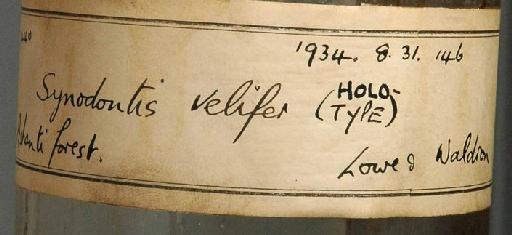 1934. 8. 31. 146
Synodontis velifer (HOLO-
TYPE)
forest.
Lowe & Waldron